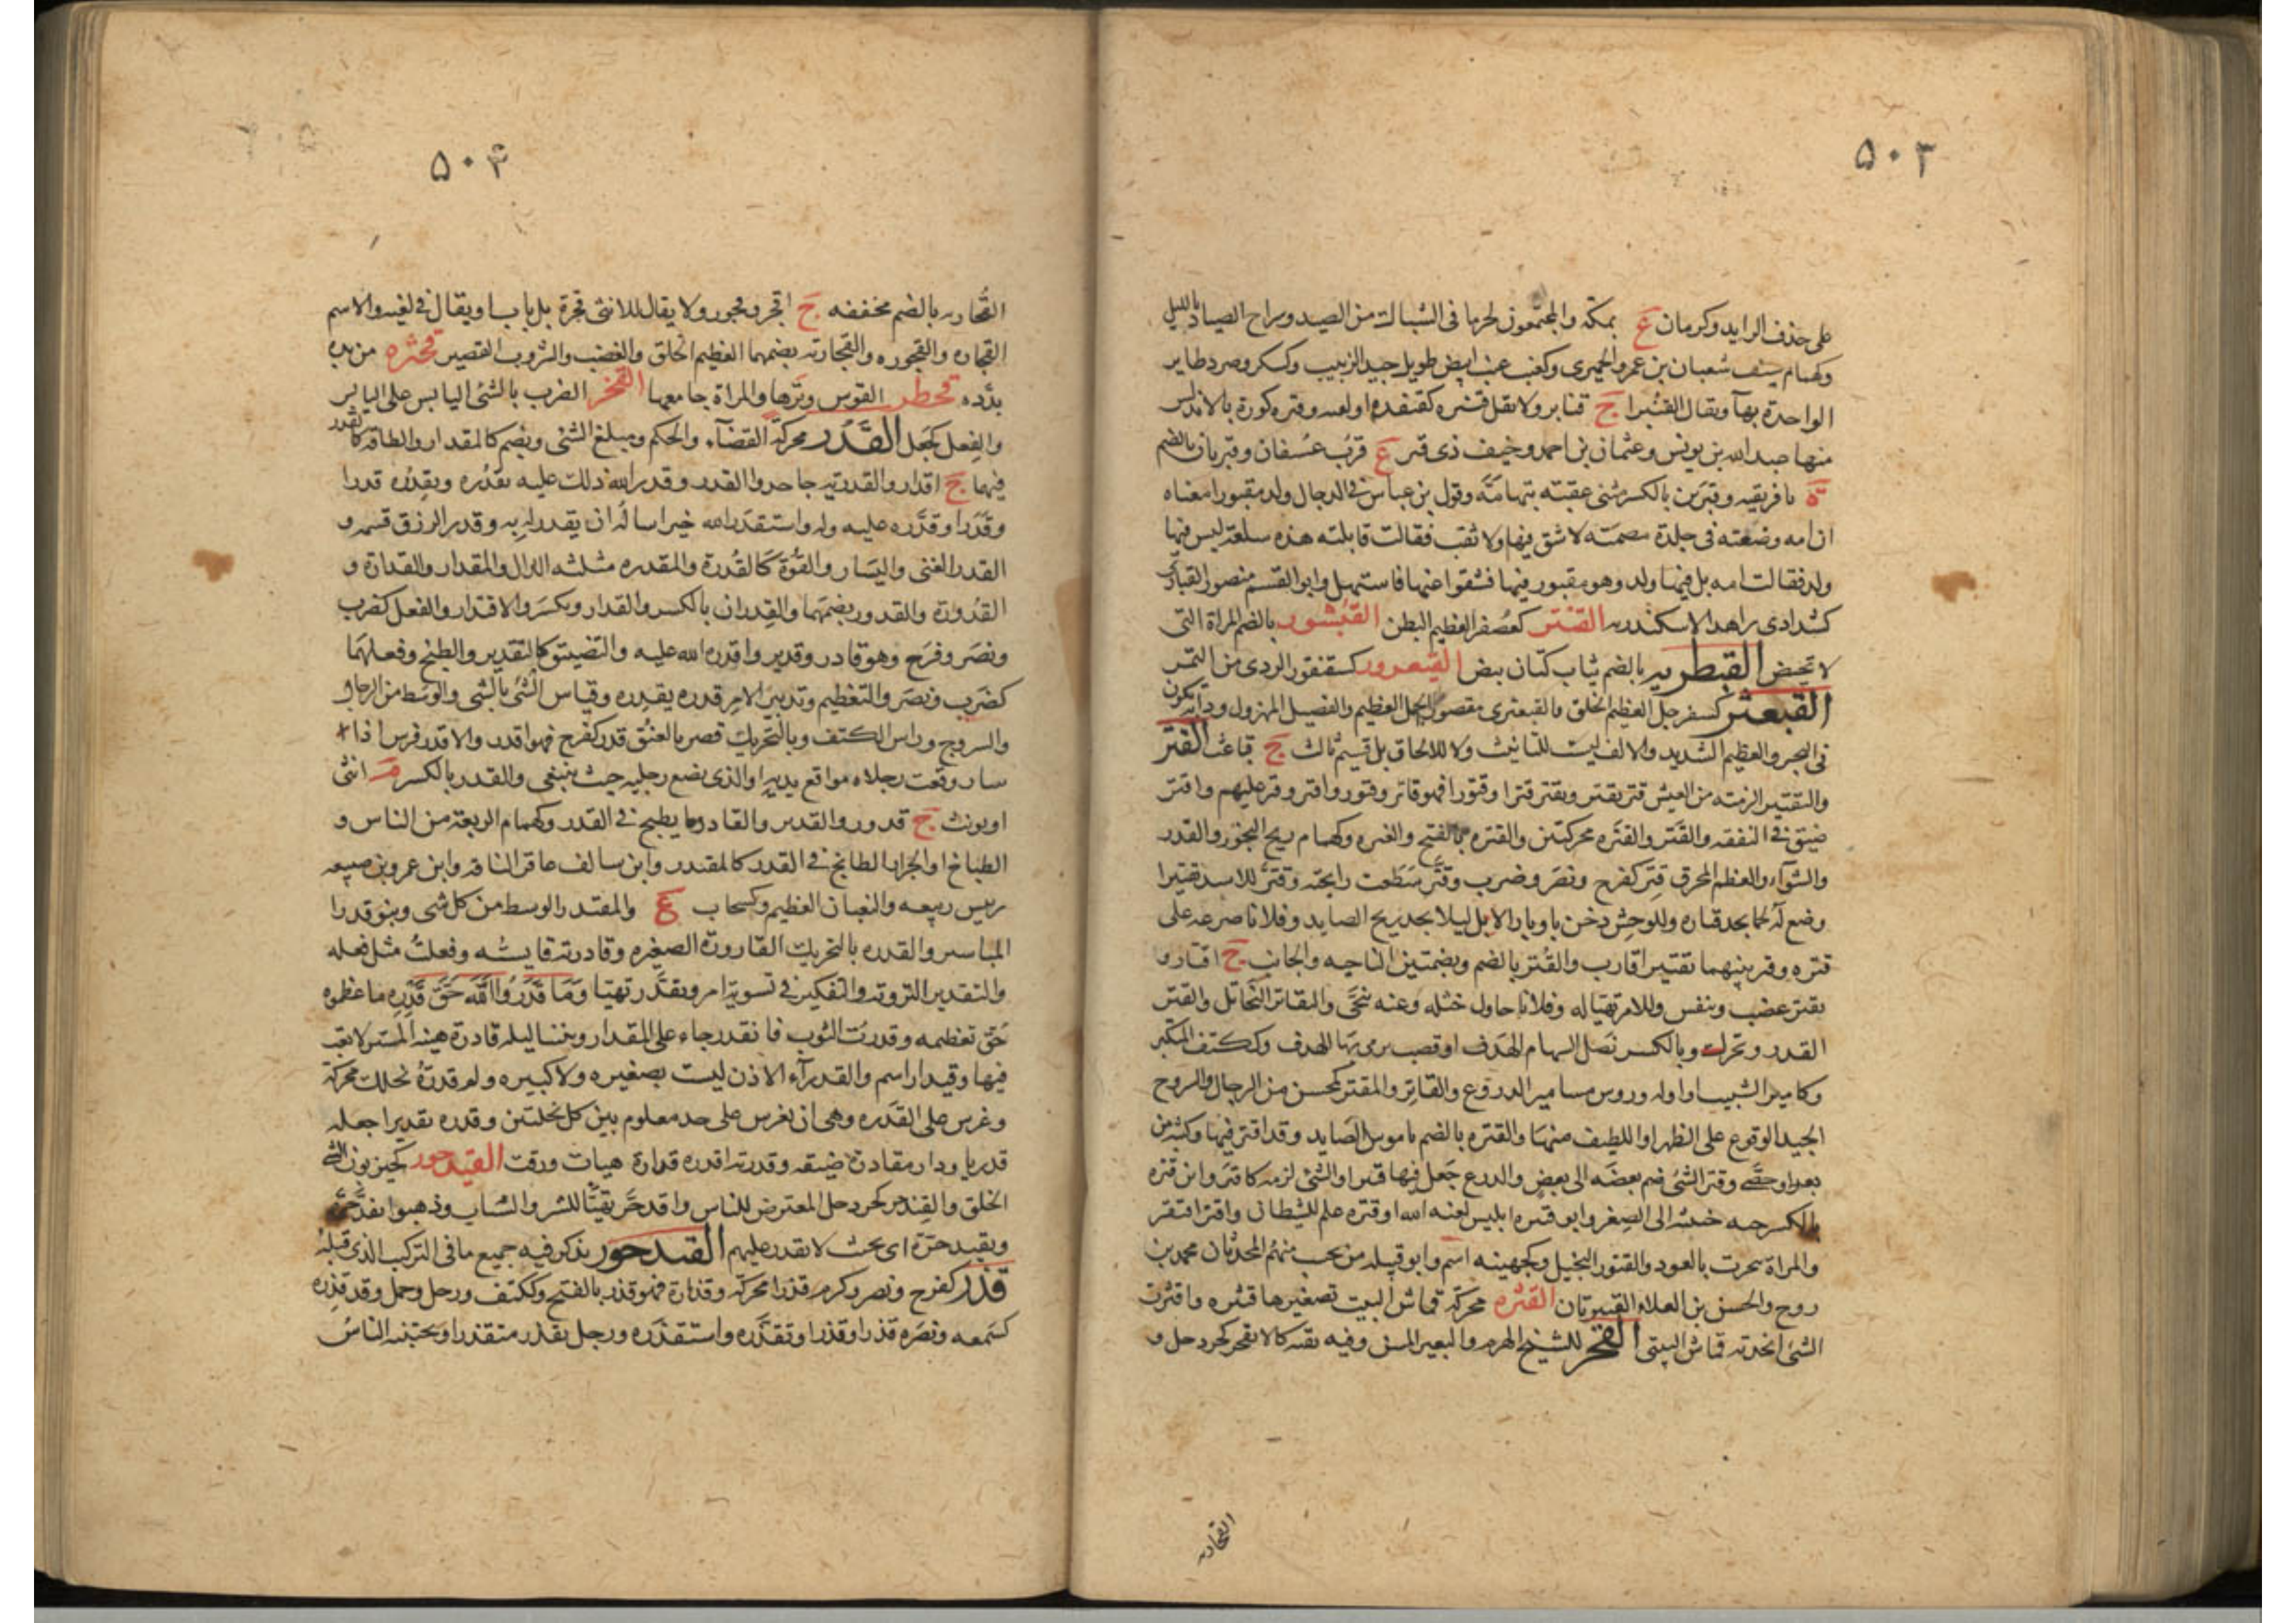 ٥٠٣
على حذف الزايد وكرمان ع بمكة والمجتمعون لجرما فى الشباك من الصيد وسراج الصياد بالليل
وكهمام سيف شعبان بن عمرو الحميرى وكعنب عنب ابيض طويل جيد الزبيب وكسكر وصرد طاير
الواحدة بهآ ويقال القنبرا ج قنابر ولا تقل قنبره كقنفذه او لغيه وقبره كورة بالاندلس
منها عبدالله بن يونس وعثمان بن احمد وخيف ذى قبر ع قرب عسفان وقبريان بالضم
ة بافريقيه وقبرين بالكسر مثنى عقبته بتهامة وقول بن عباس فى الدجال ولد مقبورا معناه
ان امه وضعته فى جلدة مصمته لا شق فيها ولا ثقب فقالت قابلته هذه سلعة ليس فيها
ولد فقالت امه بل فيها ولد وهو مقبور فيها فشقوا عنها فاستهل وابو القسم منصور القبارى
كشدادى زاهد الاسكندريه القبتر كعصفر العظيم البطن القبشور بالضم المراة التى
لا تحيض القبطريه بالضم ثياب كتان بيض القيعرور كسقنقور الردى من التمر
القبعثر كسفرجل العظيم الخلق والقبعثرى مقصورا الجمل العظيم والفصيل المهزول ودابه تكون
فى البحر والعظيم الشديد والالف ليست للتانيث ولا للالحاق بل قسيم ثالث ج قباعث القتر
والتقتير الرمقه من العيش قتر يقتر ويقتر قترا وقتورا فهو قاتر وقتور واقتر وقتر عليهم واقتر
ضيق فى النفقه والقتر والقتره محركتين والقتره بالفتح والغبره وكهمام ريح البخور والقدر
والشواء والعظم المحرق قتر كفرح ونصر وضرب وقتر سطعت رايحته وقتر للاسد تقتيرا
وضع له لحما يجد قتاره وللوحش دخن باوبار الابل ليلا يجد ريح الصايد وفلانا صرعه على
قتره وقتر بينهما تقتيرا قارب والقتر بالضم وبضمتين الناحيه والجانب ج اقتار و
تقتر غضب وتنفس وللامر تهيا له وفلانا حاول ختله وعنه تنحى والتقاتر التخاتل والقتر
القدر وتحرك وبالكسر نصل السهام الهدف او قصب يرمى بها الهدف وككتف المتكبر
وكامير الشيب او اوله وروس مسامير الدروع والقاتر والمقتر كمحسن من الرجال والسروج
الجيد الوقوع على الظهر او اللطيف منها والقتره بالضم ناموس الصايد وقد اقتر فيها وكثبة من
بعر او حصى وقتر الشئ ضم بعضه الى بعض والدرع جعل فيها قتيرا والشئ لزمه كاقتر وابن قتره
بالكسر حيه خبيثه الى الصغر وابو قتره ابليس لعنه الله او قتره علم للشيطان واقتر افتقر
والمراة تبخرت بالعود والقتور البخيل وكجهينه اسم وابو قبيله من تجيب منهم المحدثان محمد بن
روح والحسن بن العلاء القتيريان القثره محركة قماش البيت تصغيرها قثيره واقتثرت
الشئ اتخذته قماش لبيتى القحر للشيخ الهرم والبعير المسن وفيه بقيه كالانقحر كجردحل و
القحاريه
٥٠٤
القحاريه بالضم مخففه ج اقحر وقحور ولا يقال للانثى قحرة بل ناب او يقال فى لغيه والاسم
القحاره والقحوره والقحاريه بضمهما العظيم الخلق والغضب والشروب القصير قحثره من يده
بدده قحطر القوس وترها والمراة جامعها القخر الضرب بالشئ اليابس على اليابس
والفعل كجعل القدر محركة القضاء والحكم ومبلغ الشئ ويضم كالمقدار والطاقه كالقدر
فيهما ج اقدار والقدريه جاحدوا القدر وقدر الله ذلك عليه يقدره ويقدره قدرا
وقدرا وقدره عليه وله واستقدر الله خيرا ساله ان يقدر له به وقدر الرزق قسمه و
القدر الغنى واليسار والقوة كالقدرة والمقدره مثلثه الدال والمقدار والقداره و
القدورة والقدور بضمهما والقدران بالكسر والقدار ويكسر والاقتدار والفعل كضرب
ونصر وفرح وهو قادر وقدير واقدره الله عليه والتضييق كالتقدير والطبخ وفعلهما
كضرب ونصر والتعظيم وتدبير الامر قدره يقدره وقياس الشئ بالشئ والوسط من الرحال
والسروج وراس الكتف وبالتحريك قصر العنق قدر كفرح فهو اقدر والاقدر فرس اذا
سار وقعت رجلاه مواقع يديه او الذى يضع رجليه حيث ينبغى والقدر بالكسر م انثى
او يونث ج قدور والقدير والقادر ما يطبخ فى القدر وكهمام الربعة من الناس و
الطباخ او الجزار الطابخ فى القدر كالمقتدر وابن سالف عاقر الناقه وابن عمرو بن ضبيعه
رييس ربيعه والثعبان العظيم وكسحاب ع والمقتدر الوسط من كل شى وبنو قدرا
المياسير والقدره بالتحريك القارورة الصغيره وقادرته قايسته وفعلت مثل فعله
والتقدير التروية والتفكير فى تسوية امر وتقدر تهيا وما قدروا الله حق قدره ما عظموه
حق تعظيمه وقدرت الثوب فانقدر جاء على المقدار وبيننا ليلة قادرة هينة المسير لا تعب
فيها وقيدار اسم والقدراء الاذن ليست بصغيره ولا كبيره ولم قدرة نخلك محركة
وغرس على القدره وهى ان يغرس على حد معلوم بين كل نخلتين وقدره تقديرا جعله
قدريا ودار مقادرة ضيقه وقدرته اقدره قدارة هيات ورقت القيدحور كحيزبون السئ
الخلق والقندحر كجردحل المعترض للناس واقدحر تهيا للشر والسباب وذهبوا بقدحرة
وبقيدحرة اى بحيث لا يقدر عليهم القيدحور يذكر فيه جميع ما فى التركيب الذى قبله
قذر كفرح ونصر وكرم قذرا محركة وقذارة فهو قذر بالفتح وككتف ورجل وحمل وقد قذره
كسمعه ونصره قذرا وقذرا وتقذره واستقذره ورجل يقذر متقذر او يجتنبه الناس